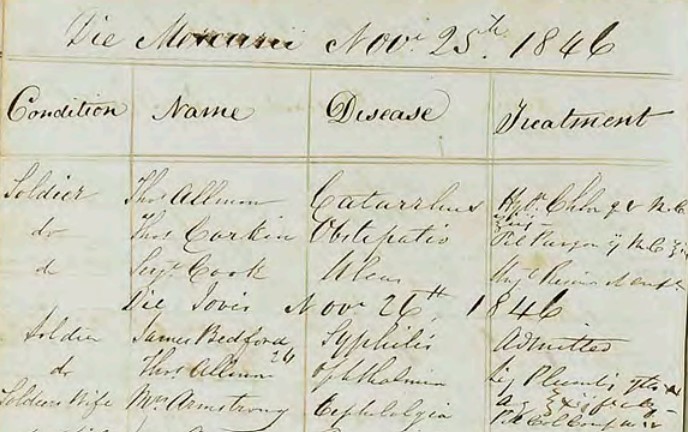 Die Mercurii Nov. 25th. 1846
Condition Name Disease Treatment
Soldier Thos Allmon Catarrhus Hyd. Chlor
do Thos Corkin Obstipatio Pil Purgan ij M.C
do Sergt. Cook Ulcus Ungt Resin
Die Jovis Novr 26th, 1846
Soldier James Bedford Syphilis Admitted
do Thos Allmon Ophthalmia Liq Plumbi
Soldiers Wife Mrs Armstrong Cephalalgia Pil Col Comp